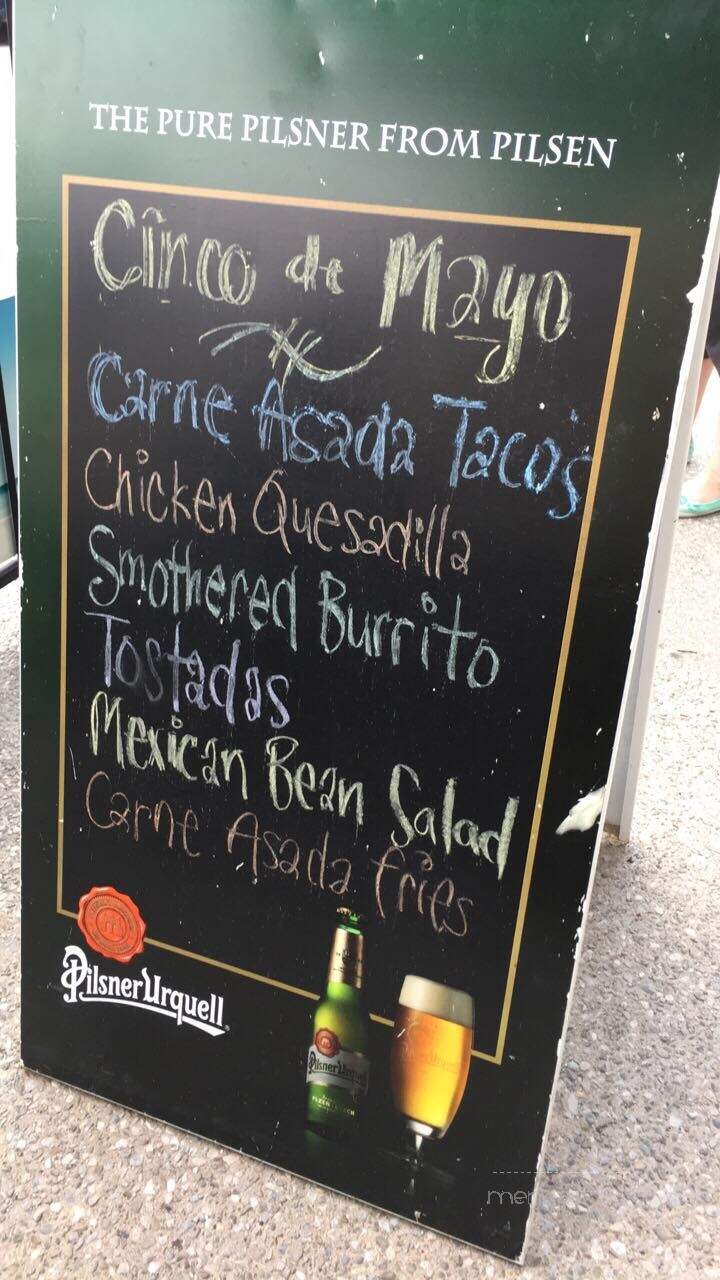 THE PURE PILSNER FROM PILSEN
Cinco de Mayo
Carne Asada Taco's
Chicken Quesadilla
Smothered Burrito
Tostadas
Mexican Bean Salad
Carne Asada fries
Pilsner Urquell